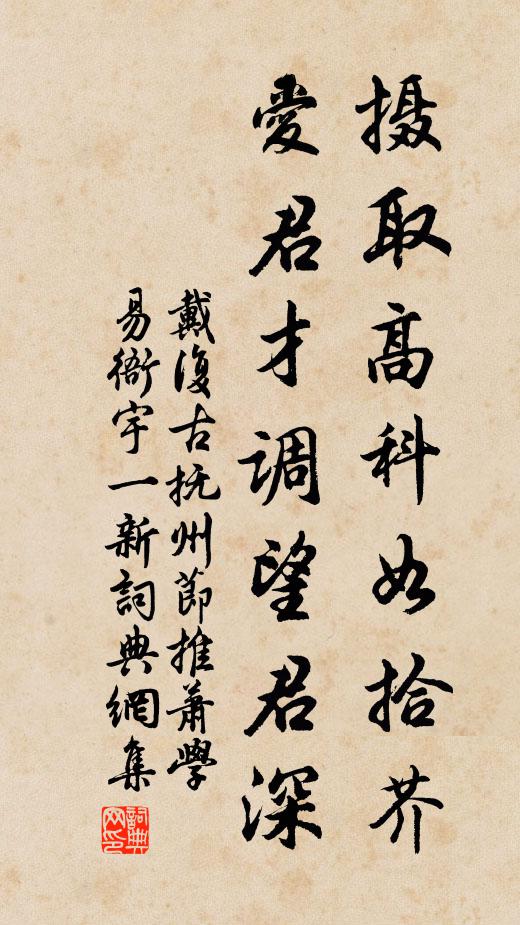 摄取高科如拾芥
愛君才調望君深
戴復古抚州節推蕭學
易衙宇一新詞典網集
詞典网印